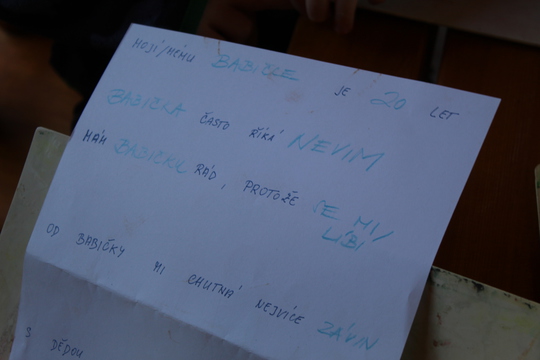 MOJÍ/MÉMU BABIČCE JE 20 LET
BABIČKA ČASTO ŘÍKÁ NEVÍM
MÁM BABIČKU RÁD, PROTOŽE SE MI/
LÍBÍ
OD BABIČKY MI CHUTNÁ NEJVÍCE ZÁVIN
S DĚDOU